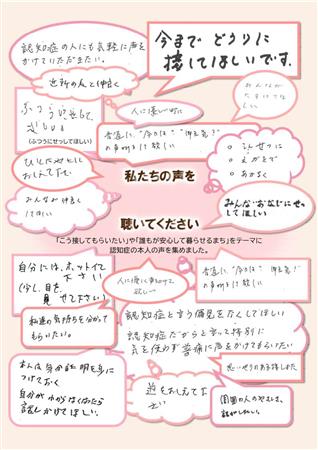 認知症の人にも気軽に声を
かけていただきたい。
今まで どうりに
接してほしいです。
近所の人と仲良く
みんなが
たすけてほ
しい
ふつうに
(ふつうにせっしてほしい)
人に優しい町に
普通に
の声掛けが欲しい
しんせつに
えがおで
あかるく
ひとたちとして
みんなが仲良く
してほしい
私たちの声を
みんなおなじにせっ
してほしい
聴いてください
「こう接してもらいたい」や「誰もが安心して暮らせるまち」をテーマに
認知症の本人の声を集めました。
自分には、ホットイて
下さい
(少し、目を、
見せて下さい)
人に優しく声かけて
欲しい
普通に
の声掛けが欲しい
私達の気持ちを分かって
もらいたい。
認知症と言う偏見をなくしてほしい
認知症だからと言って特別に
気を使わず普通に声をかけてもらいたい
本人は身分証明を身に
つけておく
自分がわからなくなったら
話しかけてほしい。
道をおしえて下
さい
思いやりのある接しかた
周囲の人のやさしさ、